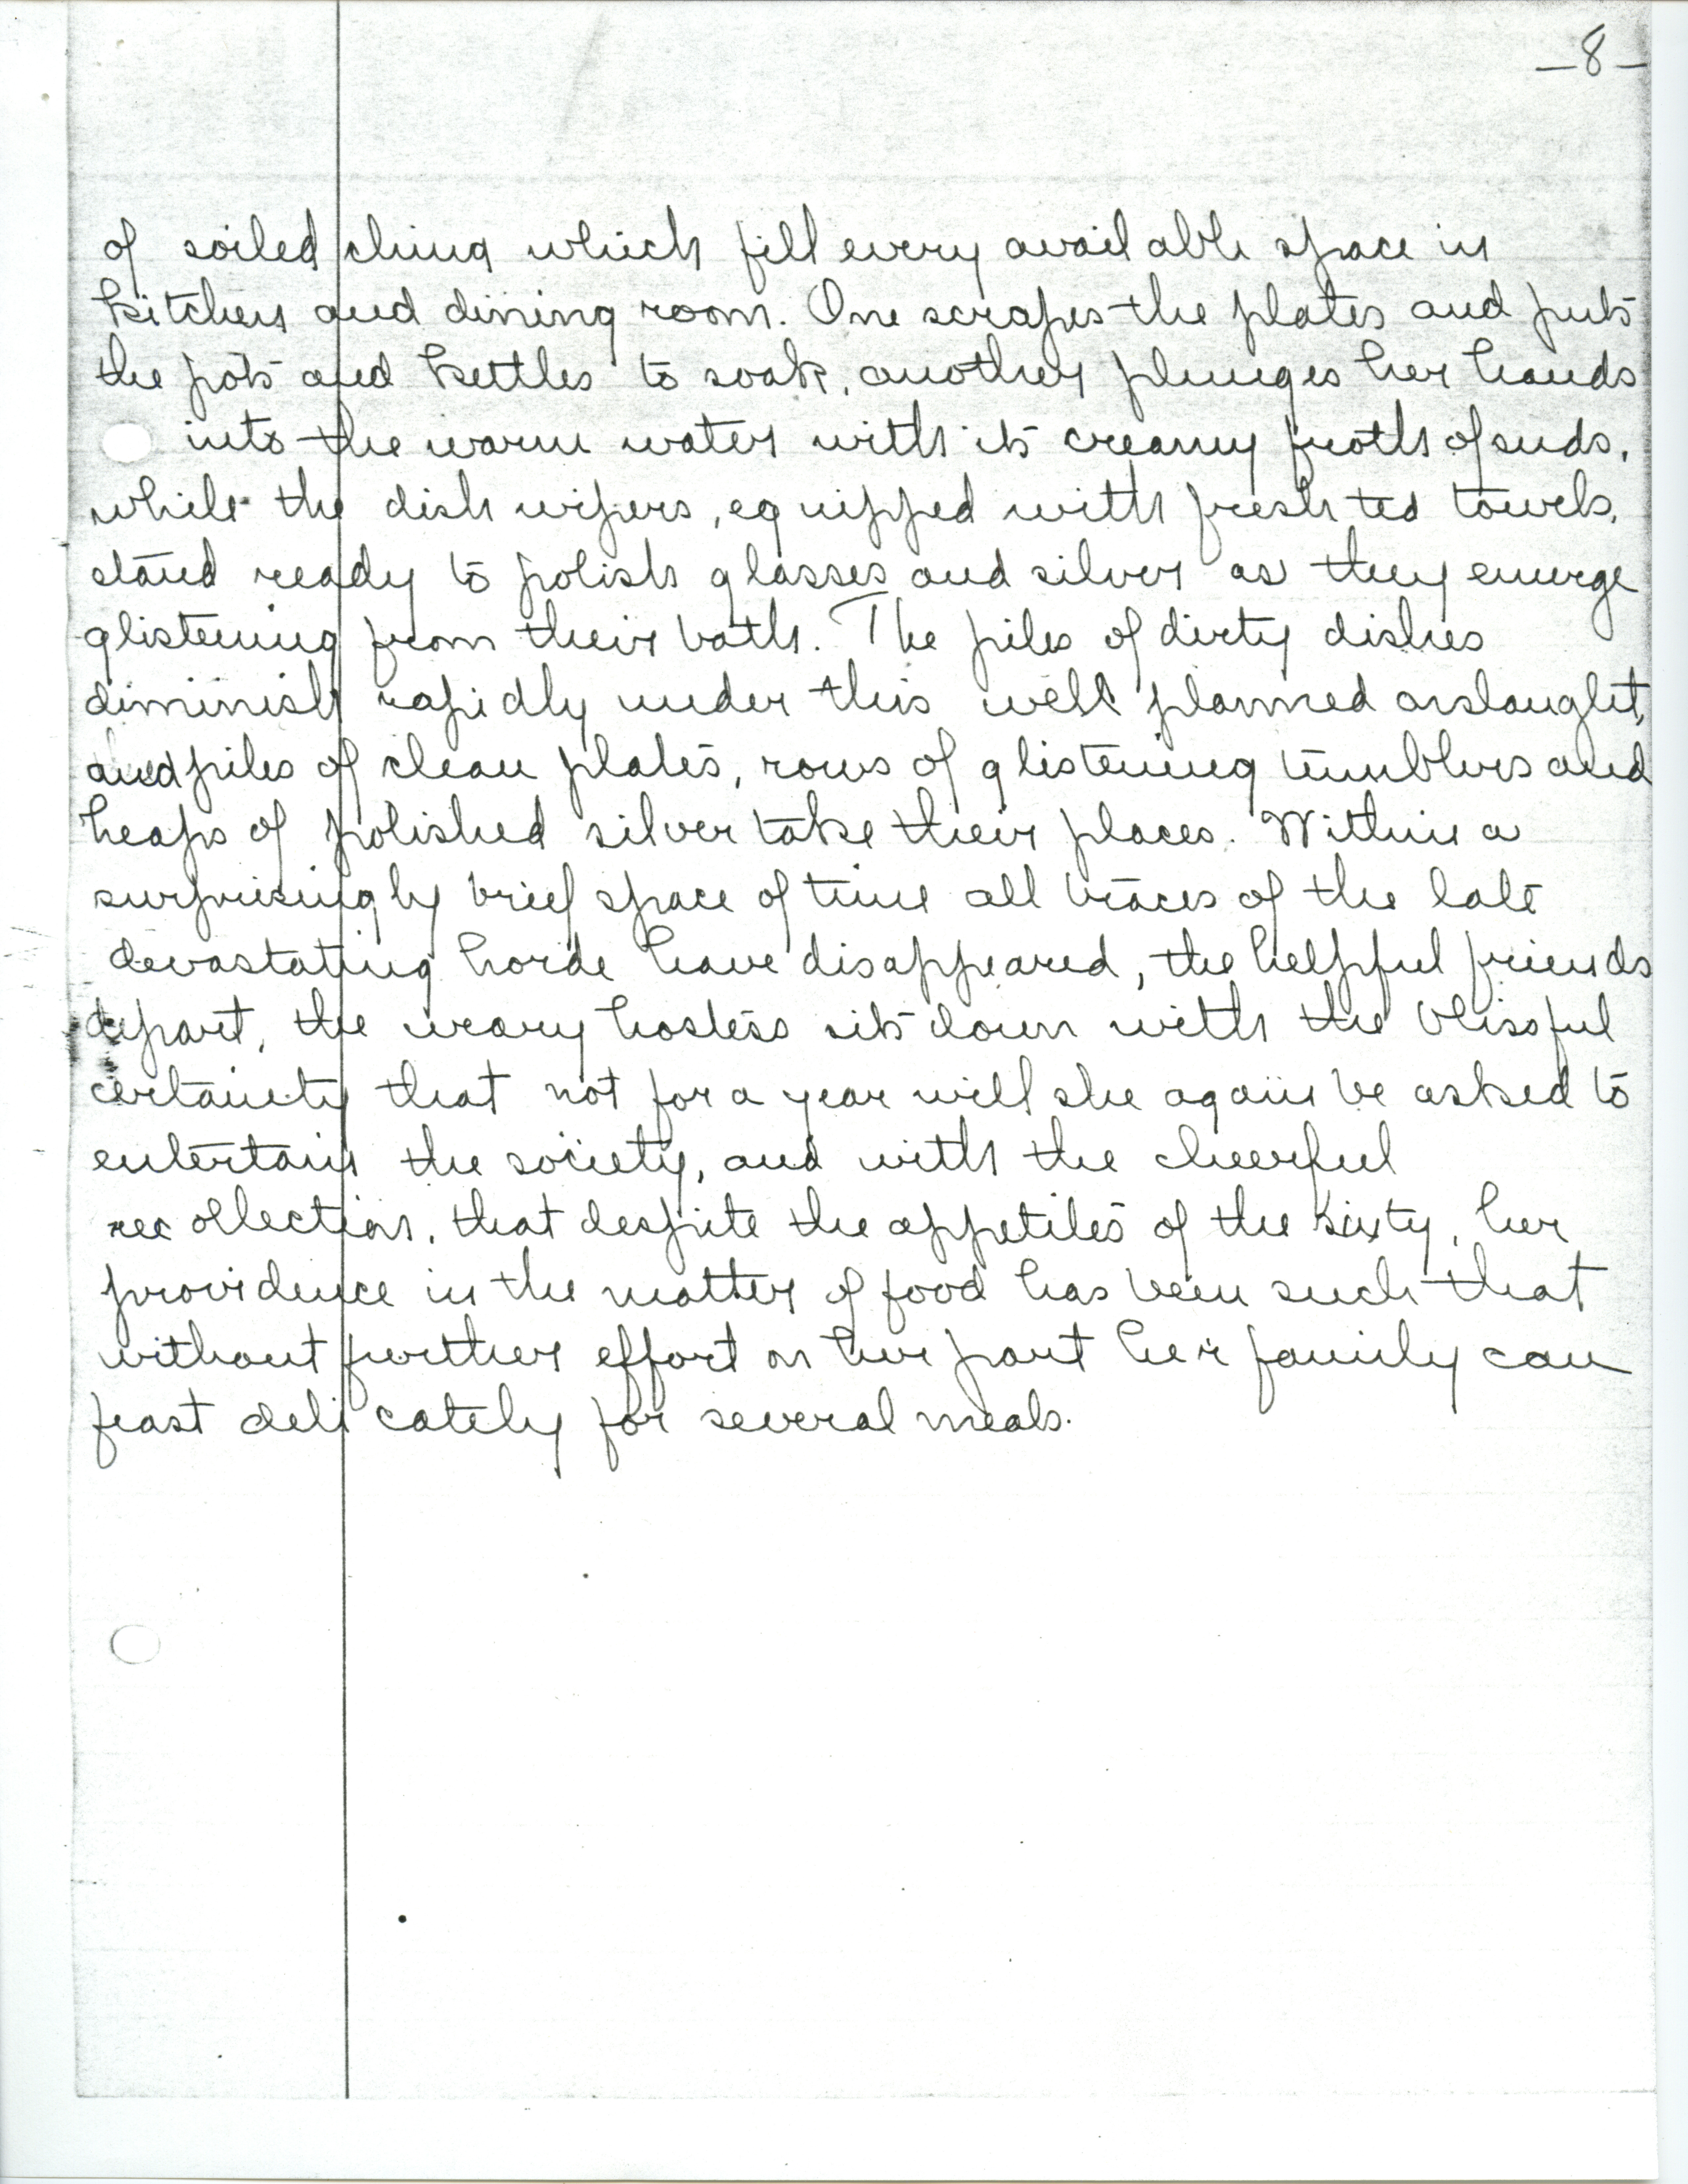 —8—
of soiled china which fill every available space in
kitchen and dining room. One scrapes the plates and puts
the pots and kettles to soak, another plunges her hands
into the warm water with its creamy froth of suds,
while the dish wipers, equipped with fresh tea towels,
stand ready to polish glasses and silver as they emerge
glistening from their bath. The piles of dirty dishes
diminish rapidly under this well planned onslaught,
and piles of clean plates, rows of glistening tumblers and
heaps of polished silver take their places. Within a
surprisingly brief space of time all traces of the late
devastating horde have disappeared, the helpful friends
depart, the weary hostess sits down with the blissful
certainty that not for a year will she again be asked to
entertain the society, and with the cheerful
recollection, that despite the appetites of the sixty, her
providence in the matter of food has been such that
without further effort on her part her family can
feast delicately for several meals.